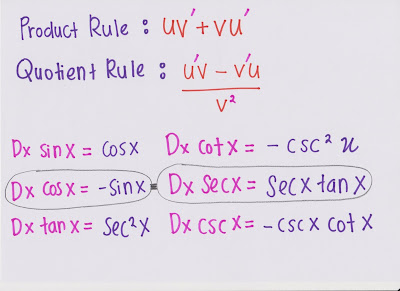 Product Rule : uv'+vu'
Quotient Rule : u'v - v'u
v²
Dx sin x = cos x Dx cot x = - csc² x
Dx cos x = -sin x = Dx sec x = sec x tan x
Dx tan x = sec² x Dx csc x = -csc x cot x